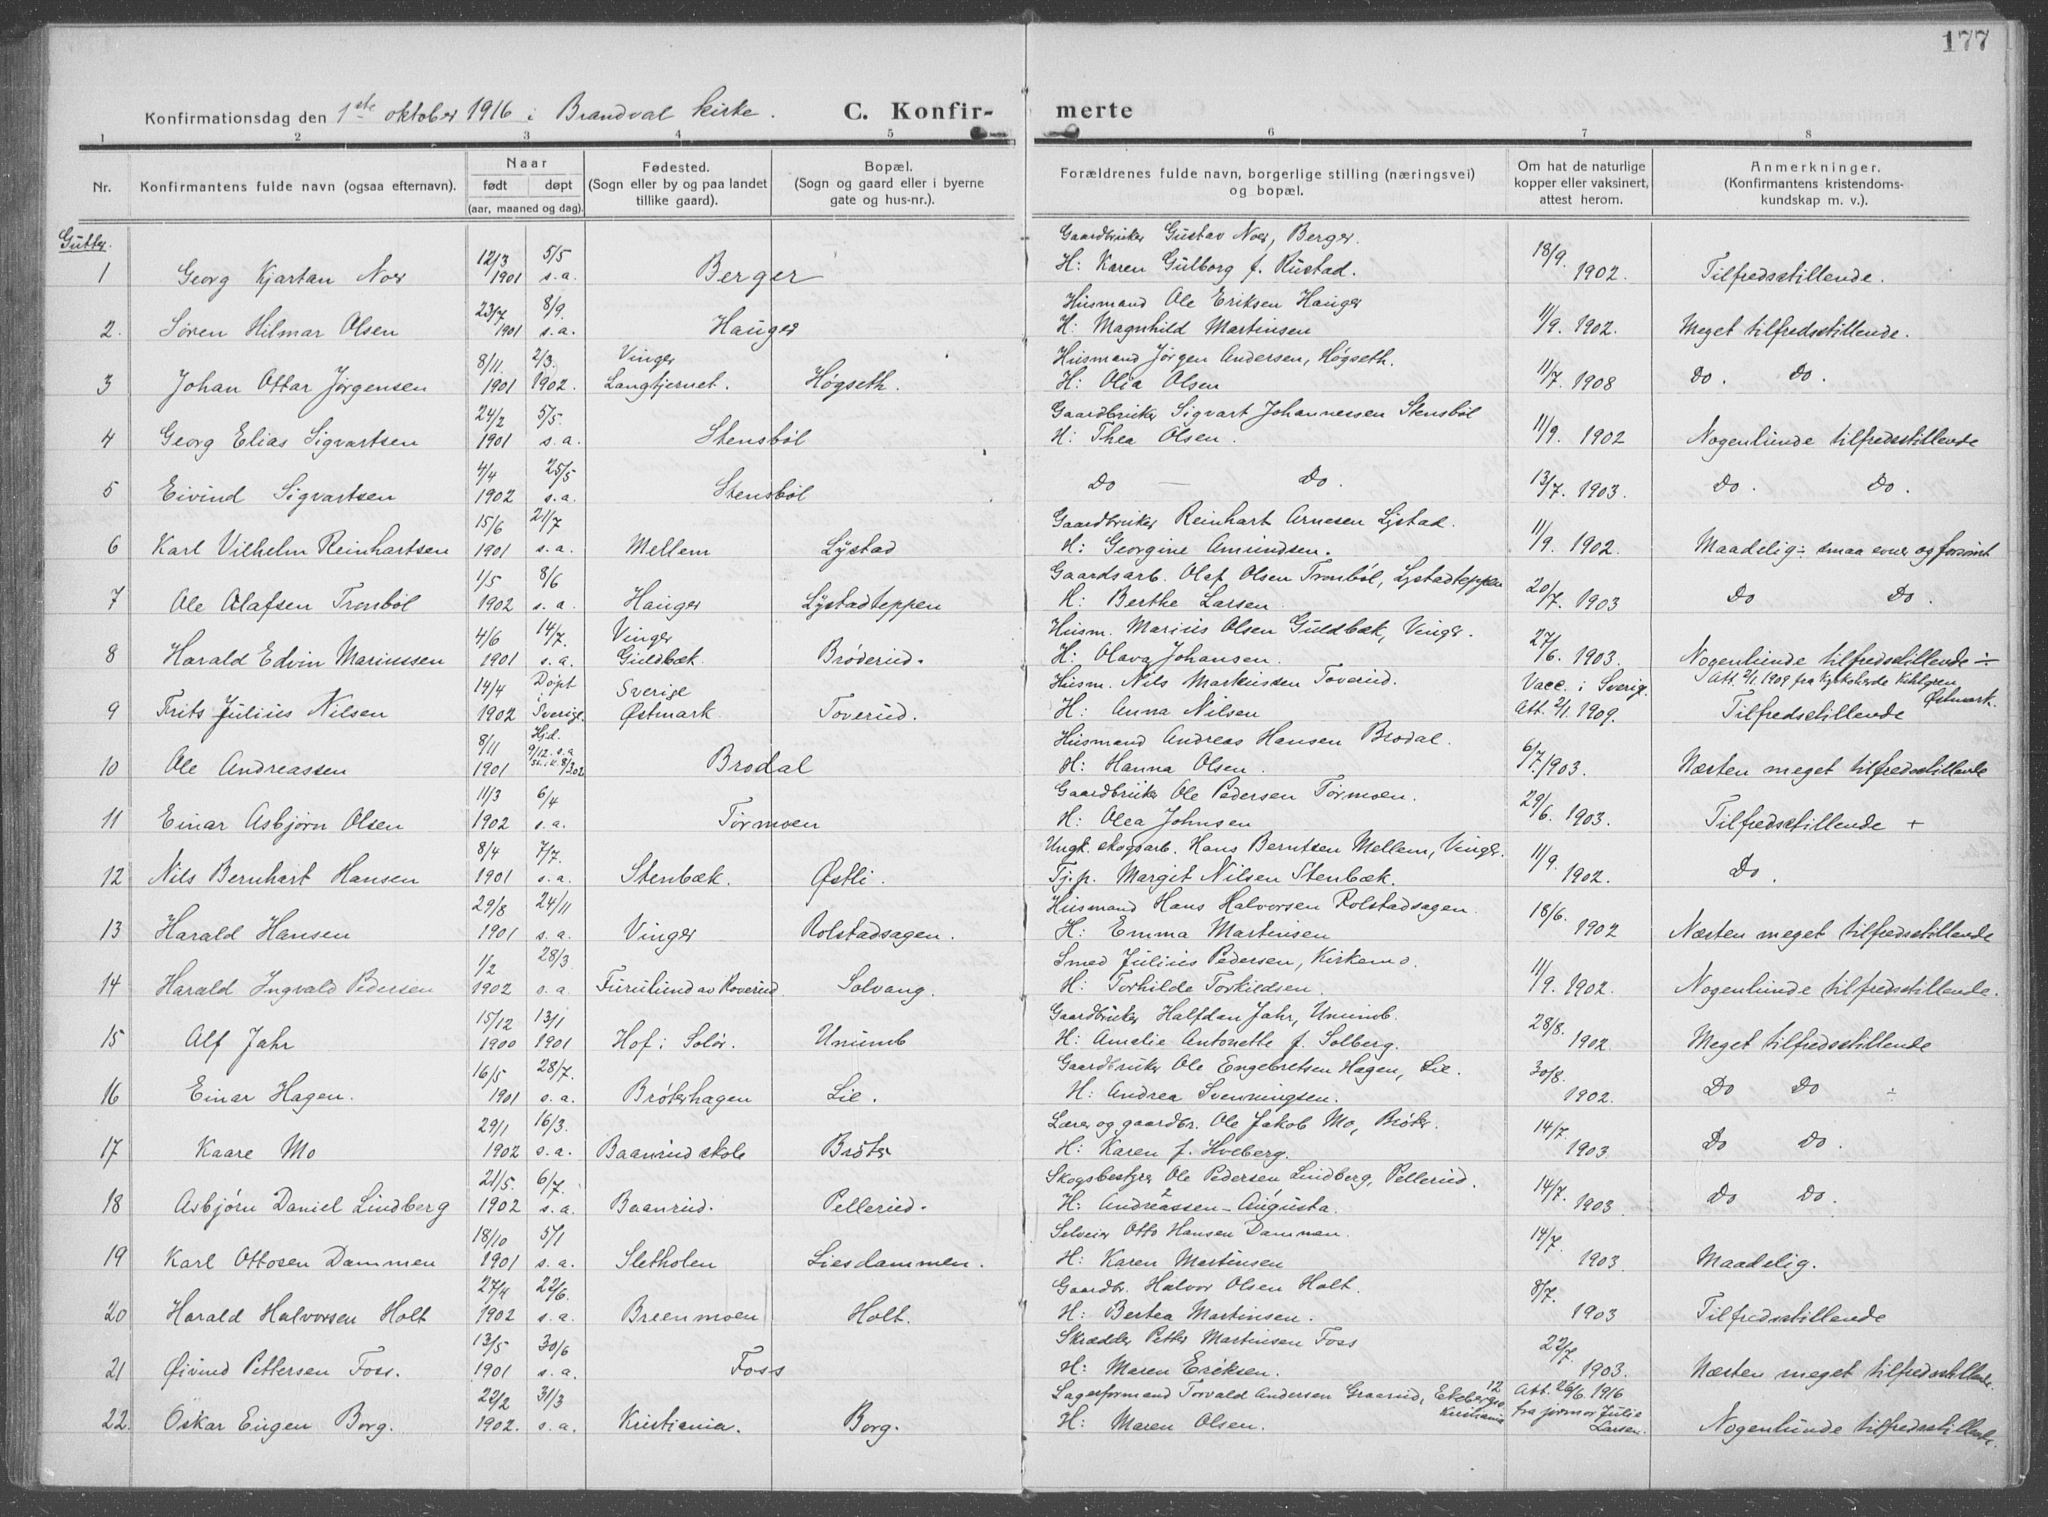 177
Konfirmationsdag den 1ste oktober 1916 i Brandval kirke. C. Konfir- merte
1 2 3 4 5 6 7 8
Nr. Konfirmantens fulde navn (ogsaa efternavn). Naar født døpt (aar, maaned og dag). Fødested. (Sogn eller by og paa landet tillike gaard). Bopæl. (Sogn og gaard eller i byerne gate og hus-nr.). Forældrenes fulde navn, borgerlige stilling (næringsvei) og bopæl. Om hat de naturlige kopper eller vaksinert, attest herom. Anmerkninger. (Konfirmantens kristendoms- kundskap m. v.).
Gutter.
12/3 5/5 Gaardbruker Gustav Noer, Berger. 18/9.
1 Georg Kjartan Noer 1901 s. a. Berger H: Karen Gulborg f. Rustad. 1902. Tilfredsstillende.
23/7 8/9. Husmand Ole Eriksen Hauger
2. Søren Hilmar Olsen 1901 s. a. Hauger H: Magnhild Martinsen 11/9. 1902. Meget tilfredsstillende.
8/11. 2/3. Vinger Husmand Jørgen Andersen, Høgseth.
3 Johan Ottar Jørgensen 1901 1902. Langtjernet. Høgseth. H: Olia Olsen 11/7. 1908 Do. Do.
24/2 5/5. Gaardbruker Sigvart Johannessen Stensbøl
4 Georg Elias Sigvartsen 1901 s. a. Stensbøl H: Thea Olsen. 11/9. 1902 Nogenlunde tilfredsstillende
4/4 25/5
5 Eivind Sigvartsen 1902 s. a. Stensbøl Do — Do. 13/7. 1903. Do. Do.
15/6 21/7 Gaardbruker Reinhart Arnesen Lystad.
6 Karl Vilhelm Reinhartsen 1901 s. a. Mellem Lystad H: Georgine Amundsen. 11/9. 1902. Maadelig ÷ smaa evner og forsømt
1/5 8/6 Gaardsarb. Olaf Olsen Trønbøl, Lystadteppen
7 Ole Olafsen Trønbøl 1902 s. a. Hauger Lystadteppen H: Berthe Larsen. 20/7. 1903 Do Do.
4/6 14/7. Vinger Husm. Marius Olsen Guldbæk, Vinger.
8 Harald Edvin Mariussen 1901 s. a. Guldbæk. Brøderud. H: Olava Johansen. 27/6. 1903. Nogenlunde tilfredsstillende ÷
14/4 Døpt i Sverige Husm. Nils Markussen Toverud. Vacc. i Sverig. Att. 2/1. 1909 fra Kyrkoherde Kihlgren Østmark.
9 Frits Julius Nilsen 1902 Sverige. Østmark. Toverud. H: Anna Nilsen Att. 2/1. 1909. Tilfredsstillende
8/11 Hjd. 9/12. s. a. Husmand Andreas Hansen Brodal.
10 Ole Andreassen 1901 st. i k. 8/3.02 Brodal H: Hanna Olsen. 6/7. 1903. Næsten meget tilfredsstillende
11/3 6/4 Gaardbruker Ole Pedersen Tørmoen.
11 Einar Asbjørn Olsen 1902 s. a. Tørmoen H: Olea Johnsen 29/6. 1903. Tilfredsstillende +
8/4 7/7. Ungk. skogsarb. Hans Berntsen Mellem, Vinger.
12 Nils Bernhart Hansen 1901 s. a. Stenbæk. Østli. Tj.p. Margit Nilsen Stenbæk. 11/9. 1902. Do.
29/8 24/11 Husmand Hans Halvorsen Rolstadsagen.
13 Harald Hansen 1901 s. a. Vinger Rolstadsagen. H: Emma Martinsen 18/6. 1902 Næsten meget tilfredsstillende
1/2 28/3 Smed Julius Pedersen, Kirkemo.
14 Harald Ingvald Pedersen 1902 s. a. Furulund av Roverud. Solvang. H: Torhilde Torkildsen. 11/9. 1902. Nogenlunde tilfredsstillende.
15/12 13/1 Gaardbruker Halfdan Jahr, Unumb.
15 Alf Jahr 1900 1901 Hof i Solør. Unumb H: Amelie Antonette f. Solberg. 28/8. 1902 Meget tilfredsstillende
16/5 28/7. Gaardbruker Ole Engebretsen Hagen, Lie.
16 Einar Hagen. 1901 s. a. Brøterhagen Lie. H: Andrea Svenningsen. 30/8. 1902. Do Do ÷
29/1 16/3. Lærer og gaardbr. Ole Jakob Mo, Brøter.
17 Kaare Mo 1902 s. a. Baanrud skole Brøter H: Karen f. Hveberg. 14/7. 1903 Do Do.
21/5. 6/7. Skogsbestyrer Ole Pedersen Lindberg, Pellerud.
18 Asbjørn Daniel Lindberg 1902 s. a. Baanrud. Pellerud. H: Andreassen - Augusta. 14/7. 1903 Do Do.
18/10 5/1 Selveier Otto Hansen Dammen.
19 Karl Ottosen Dammen 1901 s. a. Sletholen Liesdammen. H: Karen Martinsen 14/7. 1903 Maadelig.
27/4 22/6. Gaardbr. Halvor Olsen Holt.
20 Harald Halvorsen Holt 1902 s. a. Breenmoen Holt. H: Bertea Martinsen. 8/7. 1903 Tilfredsstillende
13/5 30/6 Skrædder Petter Martinsen Foss
21 Øivind Pettersen Foss. 1901 s. a. Foss H: Maren Eriksen. 22/7. 1903. Næsten meget tilfredsstillende.
22/2 31/3 Lagerformand Torvald Andersen Graarud, Ekebergv. 12 Kristiania Att. 26/6. 1916
22. Oskar Eugen Borg. 1902. s. a. Kristiania. Borg. H: Maren Olsen. fra jormor Julie Larsen. Nogenlunde tilfredsstillende.